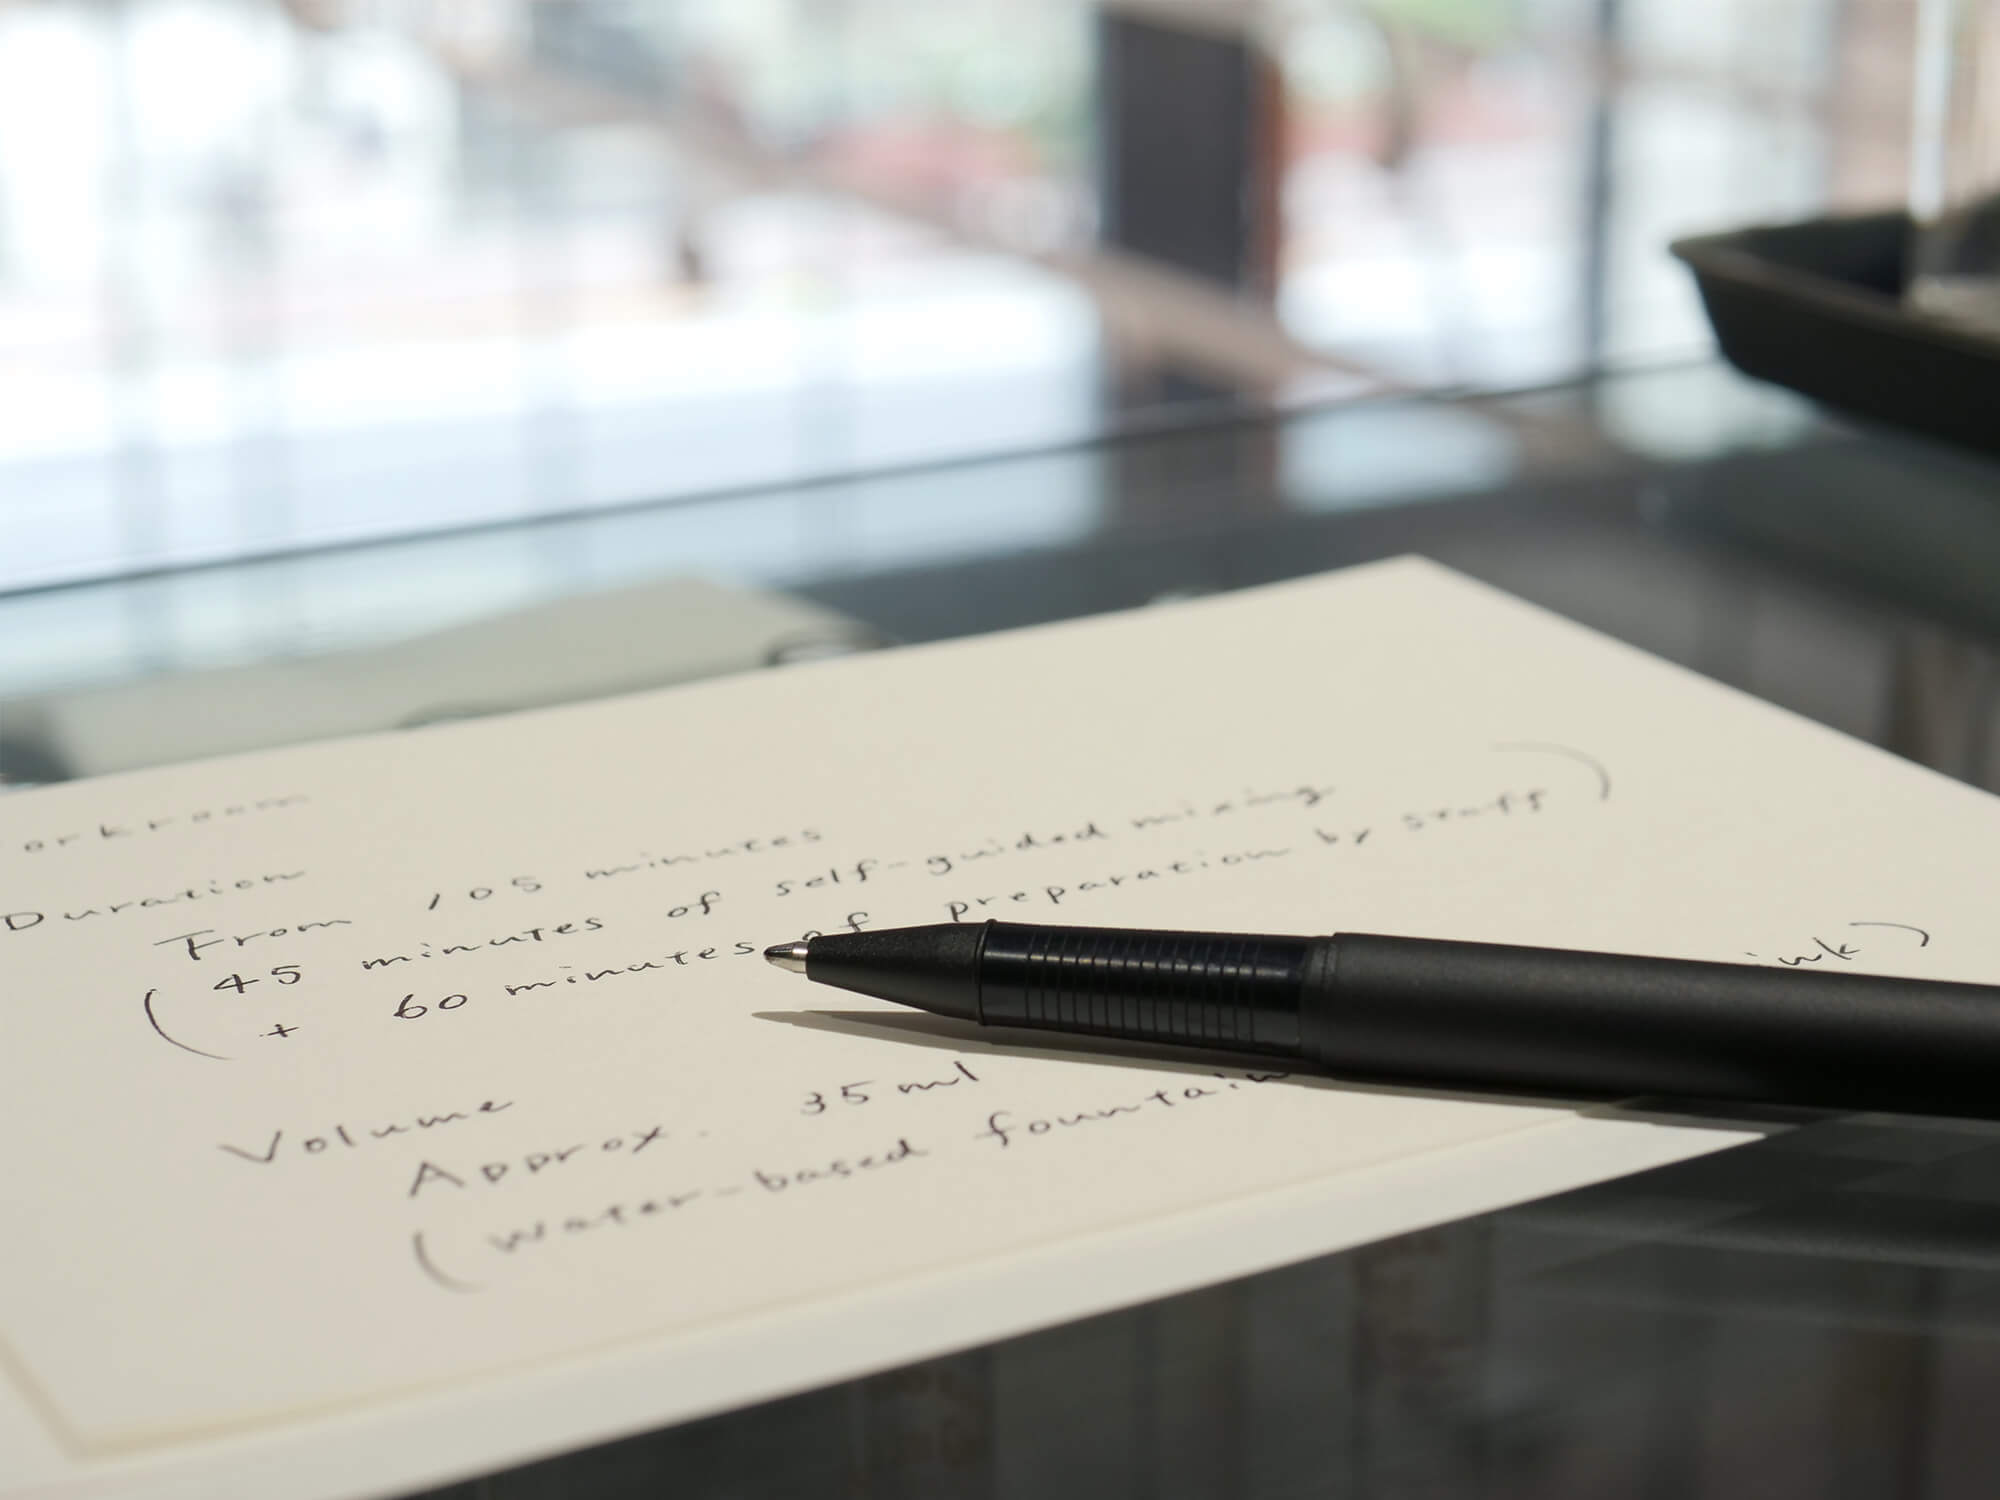 orkroom
Duration
From 105 minutes
(45 minutes of self-guided mixing
+ 60 minutes of preparation by staff)
Volume
Approx. 35ml
(water-based fountain ink)